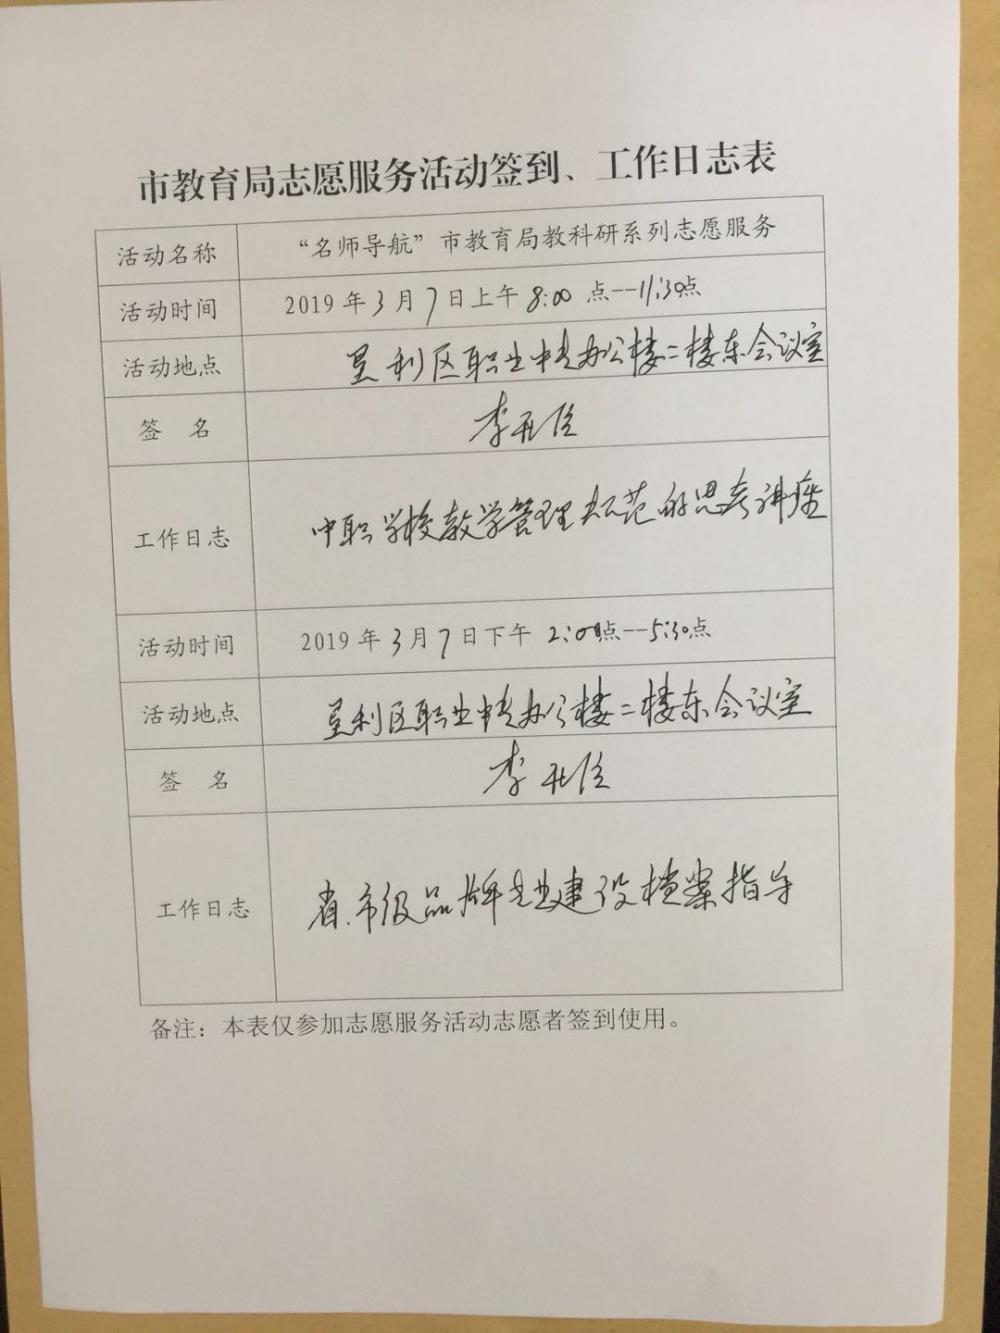 市教育局志愿服务活动签到、工作日志表
活动名称 “名师导航”市教育局教科研系列志愿服务
活动时间 2019年3月7日上午8:00点--11:30点
活动地点 垦利区职业中专办公楼二楼东会议室
签 名 李
工作日志 中职学校教学管理规范的思考讲座
活动时间 2019年3月7日下午2:00点--5:30点
活动地点 垦利区职业中专办公楼二楼东会议室
签 名 李
工作日志 省.市级品牌专业建设档案指导
备注：本表仅参加志愿服务活动志愿者签到使用。